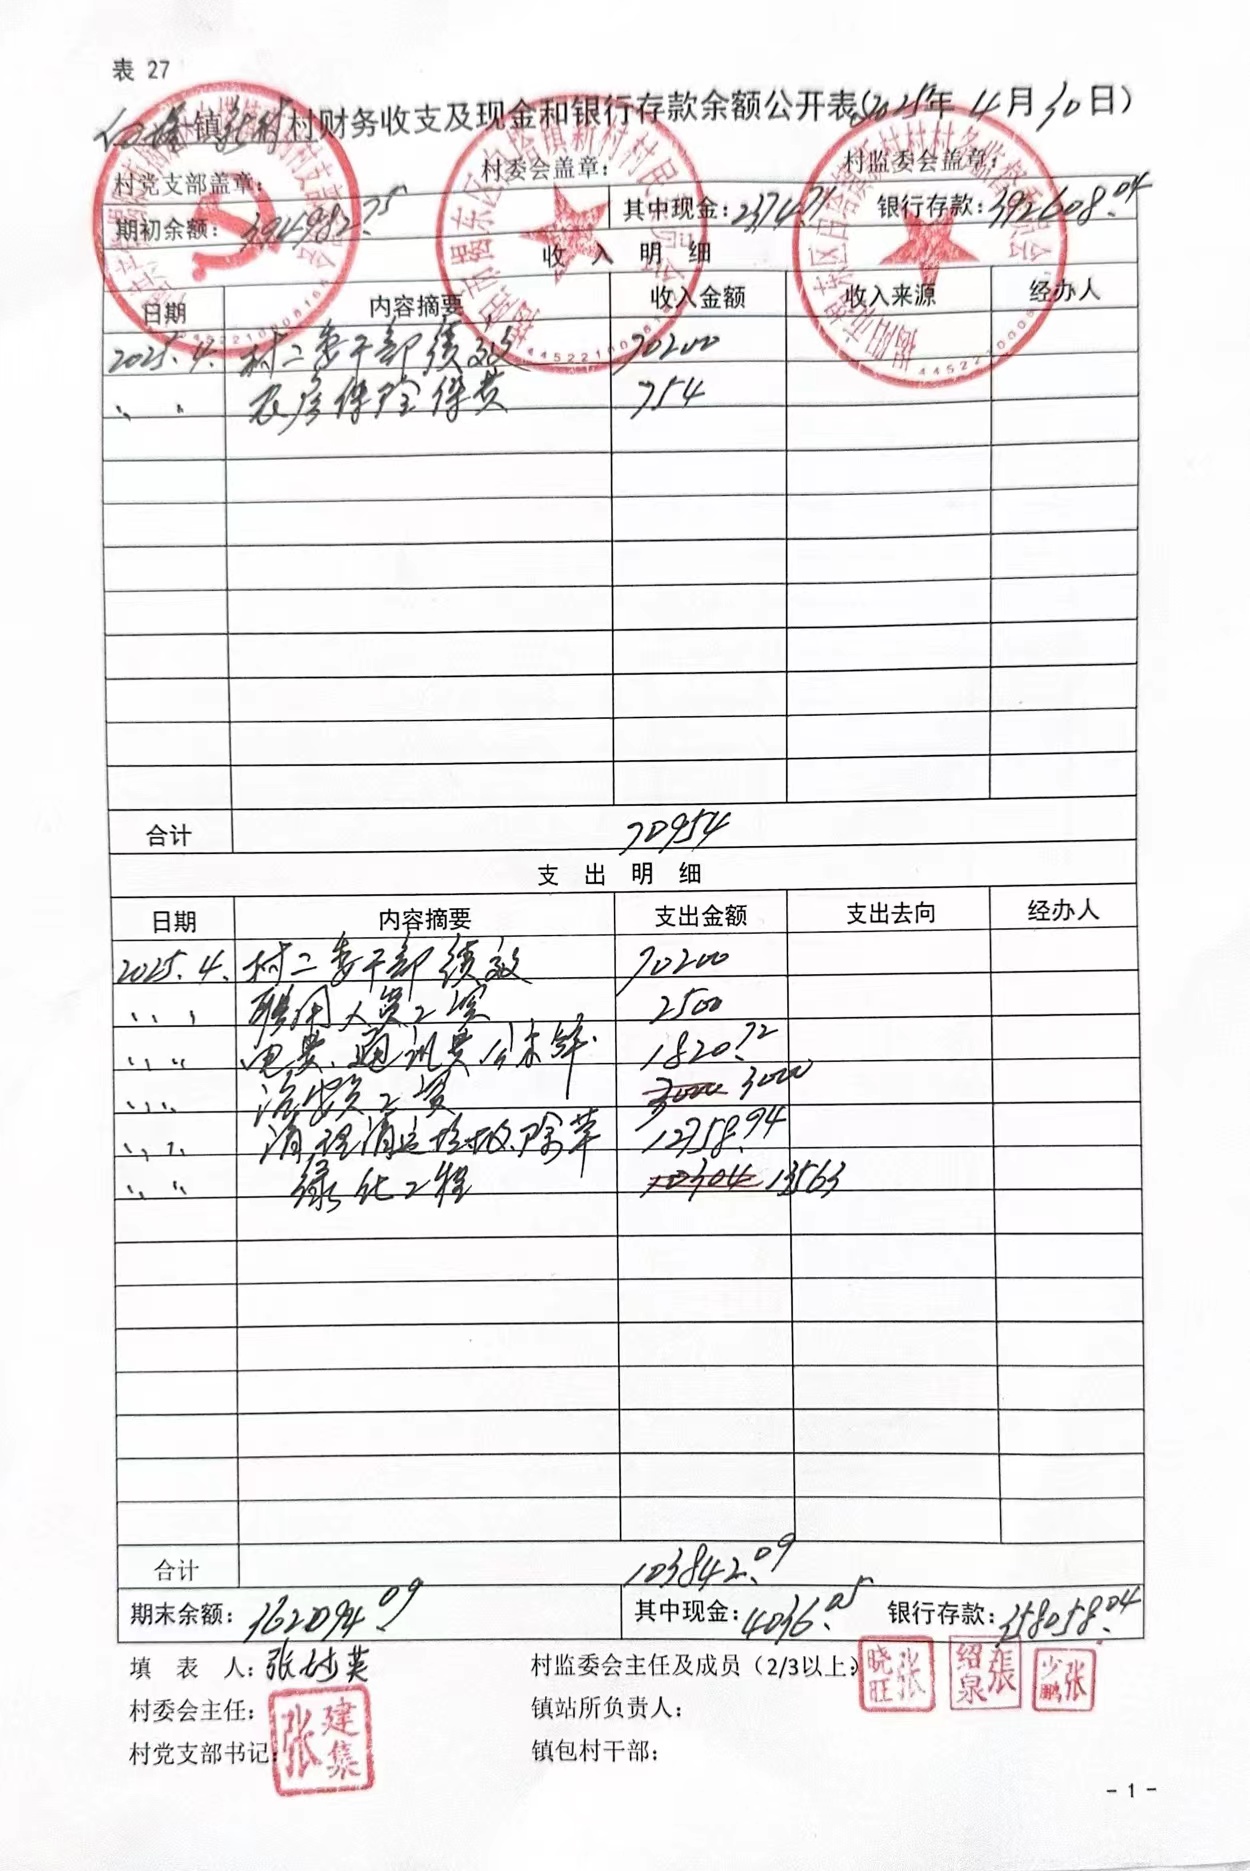 表 27
白塔镇新村村财务收支及现金和银行存款余额公开表(2025年4月30日)
村党支部盖章: 村委会盖章: 村监委会盖章:
期初余额: 394982.75 其中现金: 2374.71 银行存款: 392608.04
收 入 明 细
日期 内容摘要 收入金额 收入来源 经办人
2025.4. 村二委干部绩效 70200
〃 〃 农房保险保费 754
合计 70954
支 出 明 细
日期 内容摘要 支出金额 支出去向 经办人
2025.4. 村二委干部绩效 70200
〃 〃 聘用人员工资 2500
〃 〃 电费、通讯费、公杂等. 1820.72
〃 〃 治安员工资 3000 3000
〃 〃 清理清运垃圾、除草 12758.94
〃 〃 绿化工程 10304 13563
合计 103842.09
期末余额: 362094.09 其中现金: 4036.05 银行存款: 358058.04
填 表 人: 张 英 村监委会主任及成员（2/3以上）: 张晓旺 張绍泉 张少鹏
村委会主任: 镇站所负责人:
村党支部书记: 张建集 镇包村干部:
- 1 -